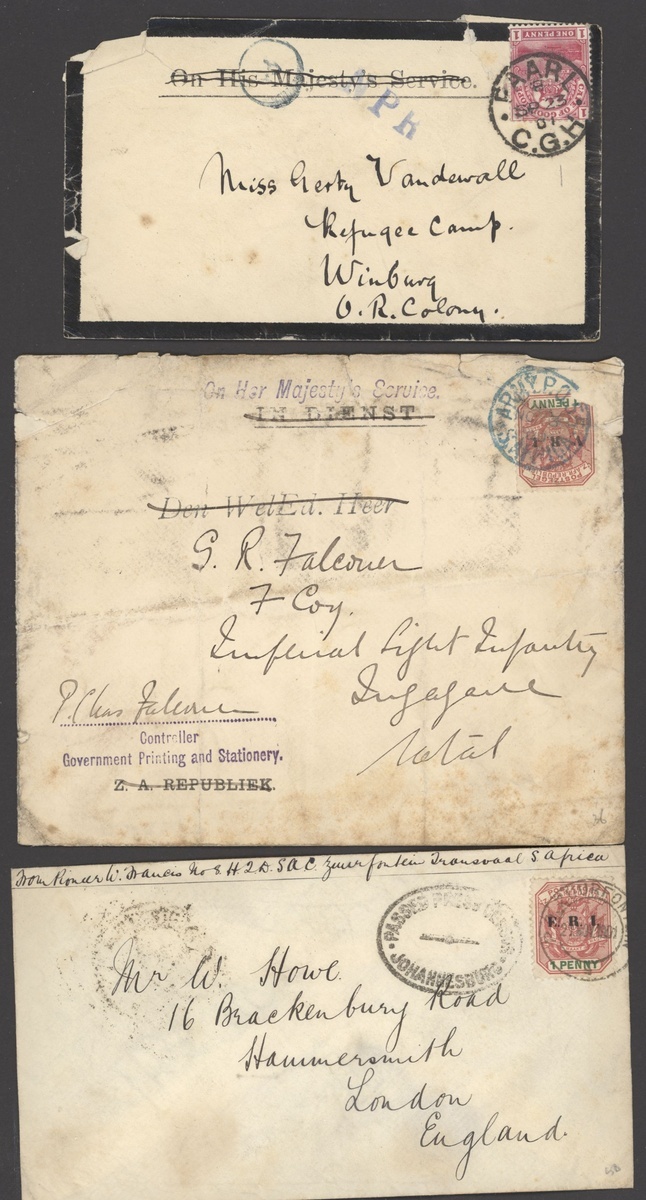 On His Majesty's Service.
PPR
ONE PENNY
PAARL
SP 23
01
C.G.H
Miss Gerty Vandewall
Refugee Camp.
Winburg
O.R. Colony.
On Her Majesty's Service.
IN DIENST
ARMY P.O.
1 PENNY
V. R. I.
Den WelEd. Heer
G. R. Falconer
F Coy.
Imperial Light Infantry
Ingagane
Natal
P. Chas Falconer
Controller
Government Printing and Stationery.
Z. A. REPUBLIEK.
36
From Ronder W. Francis No 8. H 2 D. S A C. Zuurfontein Transvaal S Africa
PASSED PRESS CENSOR
JOHANNESBURG
E. R. I.
1 PENNY
Mr W. Howe.
16 Brackenbury Road
Hammersmith
London
England.